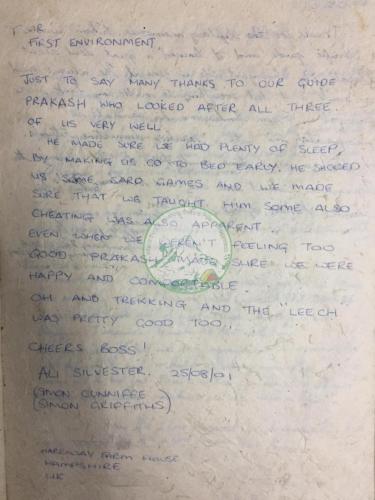 FOR
FIRST ENVIRONMENT.
JUST TO SAY MANY THANKS TO OUR GUIDE
PRAKASH WHO LOOKED AFTER ALL THREE
OF US VERY WELL.
HE MADE SURE WE HAD PLENTY OF SLEEP,
BY MAKING US GO TO BED EARLY. HE SHOWED
US SOME CARD GAMES AND WE MADE
SURE THAT WE TAUGHT HIM SOME ALSO
CHEATING WAS ALSO APPARENT..
EVEN WHEN WE WEREN'T FEELING TOO
GOOD PRAKASH MADE SURE WE WERE
HAPPY AND COMFORTABLE.
OH AND TREKKING AND THE "LEECH
WAS PRETTY GOOD TOO..
CHEERS BOSS!
ALI SILVESTER. 25/08/01
(SIMON CUNNIFFE
(SIMON GRIFFITHS)
FARM HOUSE
HAMPSHIRE
UK